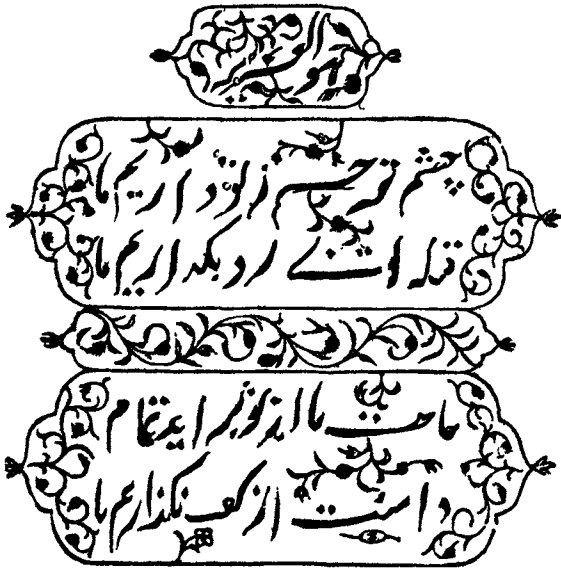 چشم ترحم ز تو داریم ما
قبله توئی رو بکه آریم ما
حاجت ما از تو برآید تمام
دامنت از کف نگذاریم ما